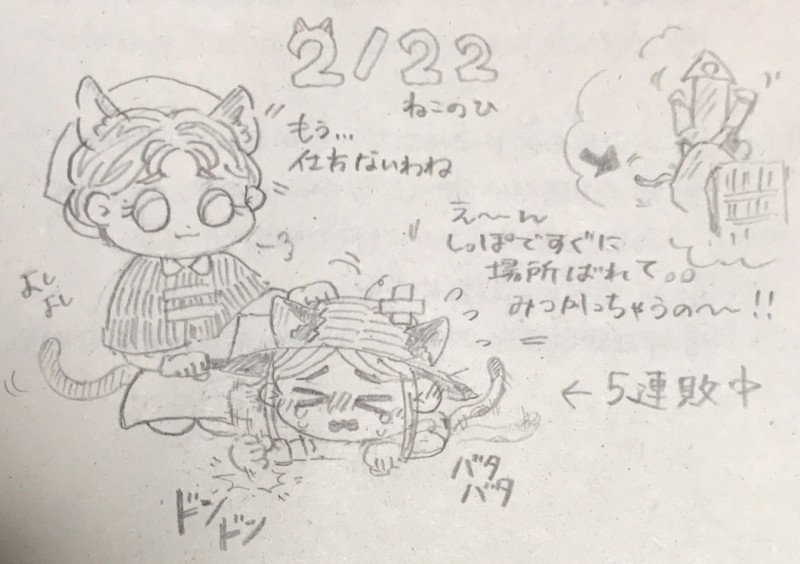 2/22
ねこのひ
もう…
仕方ないわね
え〜〜ん
しっぽですぐに
場所ばれて。。
みつかっちゃうの〜〜!!
よし
よし
←5連敗中
バタ
バタ
ドン
ドン